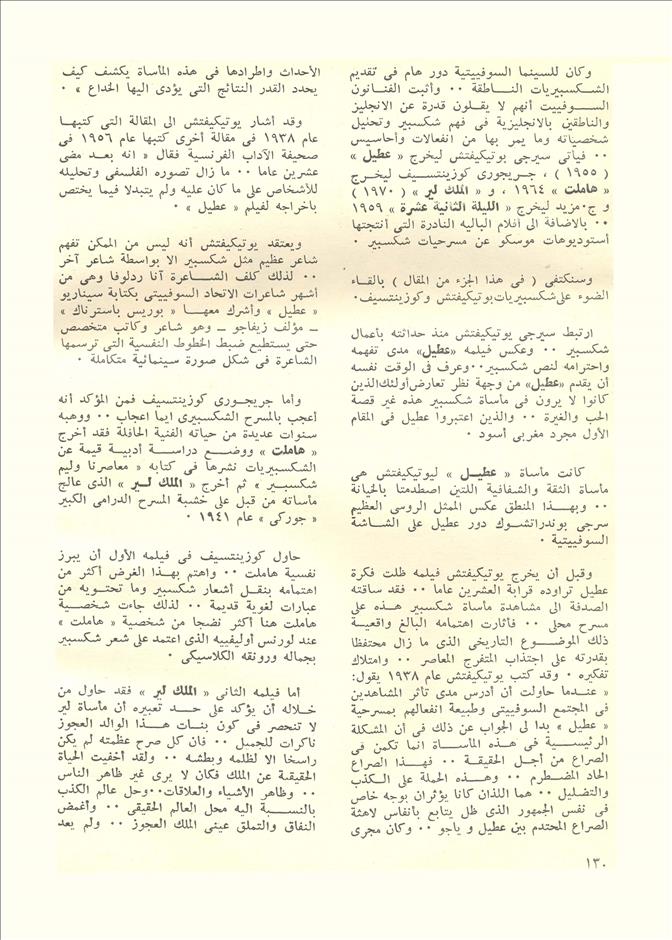 وكان للسينما السوفييتية دور هام فى تقديم
الشكسبيريات الناطقة ٠٠ وأثبت الفنانون
السوفييت أنهم لا يقلون قدرة عن الانجليز
والناطقين بالانجليزية فى فهم شكسبير وتحليل
شخصياته وما يمر بها من انفعالات وأحاسيس
٠٠ فيأتى سيرجى يوتيكيفتش ليخرج « عطيل »
( ١٩٥٥ ) ، جريجورى كوزينتسيف ليخرج
« هاملت » ١٩٦٤ ، و « الملك لير » ( ١٩٧٠ )
و ج٠مزيد ليخرج « الليلة الثانية عشرة » ١٩٥٩
٠٠ بالاضافة الى أفلام الباليه النادرة التى أنتجتها
أستوديوهات موسكو عن مسرحيات شكسبير ٠
وسنكتفى ( فى هذا الجزء من المقال ) بالقاء
الضوء على شكسبيريات يوتيكيفتش وكوزينتسيف٠
ارتبط سيرجى يوتيكيفتش منذ حداثته بأعمال
شكسبير ٠٠ وعكس فيلمه «عطيل» مدى تفهمه
واحترامه لنص شكسبير٠٠وعرف فى الوقت نفسه
أن يقدم «عطيل» من وجهة نظر تعارض أولئك الذين
كانوا لا يرون فى مأساة شكسبير هذه غير قصة
الحب والغيرة ٠٠ والذين اعتبروا عطيل فى المقام
الأول مجرد مغربى أسود ٠
كانت مأساة « عطيل » ليوتيكيفتش هى
مأساة الثقة والشفافية اللتين اصطدمتا بالخيانة
٠٠ وبهذا المنطق عكس الممثل الروسى العظيم
سرجى بوندراتشوك دور عطيل على الشاشة
السوفييتية ٠
وقبل أن يخرج يوتيكيفتش فيلمه ظلت فكرة
عطيل تراوده قرابة العشرين عاما ٠٠ فقد ساقته
الصدفة الى مشاهدة مأساة شكسبير هذه على
مسرح محلى ٠٠ فأثارت اهتمامه البالغ واقعية
ذلك الموضوع التاريخى الذى ما زال محتفظا
بقدرته على اجتذاب المتفرج المعاصر ٠٠ وامتلاك
تفكيره ٠ وقد كتب يوتيكيفتش عام ١٩٣٨ يقول:
« عندما حاولت أن أدرس مدى تأثر المشاهدين
فى المجتمع السوفييتى وطبيعة انفعالهم بمسرحية
« عطيل » بدا لى الجواب عن ذلك فى أن المشكلة
الرئيسية فى هذه المأساة انما تكمن فى
الصراع من أجل الحقيقة ٠٠ فهذا الصراع
الحاد المضطرم ٠٠ وهذه الحملة على الكذب
والتضليل ٠٠ هما اللذان كانا يؤثران بوجه خاص
فى نفس الجمهور الذى ظل يتابع بأنفاس لاهثة
الصراع المحتدم بين عطيل و ياجو ٠٠ وكان مجرى
الأحداث واطرادها فى هذه المأساة يكشف كيف
يحدد القدر النتائج التى يؤدى اليها الخداع » ٠
وقد أشار يوتيكيفتش الى المقالة التى كتبها
عام ١٩٣٨ فى مقالة أخرى كتبها عام ١٩٥٦ فى
صحيفة الآداب الفرنسية فقال « انه بعد مضى
عشرين عاما ٠٠ ما زال تصوره الفلسفى وتحليله
للأشخاص على ما كان عليه ولم يتبدلا فيما يختص
باخراجه لفيلم « عطيل » ٠
ويعتقد يوتيكيفتش أنه ليس من الممكن تفهم
شاعر عظيم مثل شكسبير الا بواسطة شاعر آخر
٠٠ لذلك كلف الشاعرة آنا ردلوفا وهى من
أشهر شاعرات الاتحاد السوفييتى بكتابة سيناريو
« عطيل » وأشرك معها « بوريس باسترناك »
ــ مؤلف زيفاجو ــ وهو شاعر وكاتب متخصص
حتى يستطيع ضبط الخطوط النفسية التى ترسمها
الشاعرة فى شكل صورة سينمائية متكاملة ٠
وأما جريجورى كوزينتسيف فمن المؤكد أنه
أعجب بالمسرح الشكسبرى ايما اعجاب ٠٠ ووهبه
سنوات عديدة من حياته الفنية الحافلة فقد أخرج
« هاملت » ووضع دراسة أدبية قيمة عن
الشكسبيريات نشرها فى كتابه « معاصرنا وليم
شكسبير » ثم أخرج « الملك لير » الذى عالج
مأساته من قبل على خشبة المسرح الدرامى الكبير
« جوركى » عام ١٩٤١ ٠
حاول كوزينتسيف فى فيلمه الأول أن يبرز
نفسية هاملت ٠٠ واهتم بهذا الغرض أكثر من
اهتمامه بنقل أشعار شكسبير وما تحتويه من
عبارات لغوية قديمة ٠٠ لذلك جاءت شخصية
هاملت هنا أكثر نضجا من شخصية « هاملت »
عند لورنس أوليفييه الذى اعتمد على شعر شكسبير
بجماله ورونقه الكلاسيكى ٠
أما فيلمه الثانى « الملك لير » فقد حاول من
خلاله أن يؤكد على حد تعبيره أن مأساة لير
لا تنحصر فى كون بنات هذا الوالد العجوز
ناكرات للجميل ٠٠ فان كل صرح عظمته لم يكن
راسخا الا لظلمه وبطشه ٠٠ ولقد أخفيت الحياة
الحقيقة عن الملك فكان لا يرى غير ظاهر الناس
٠٠ وظاهر الأشياء والعلاقات٠٠وحل عالم الكذب
بالنسبة اليه محل العالم الحقيقى ٠٠ وأغمض
النفاق والتملق عينى الملك العجوز ٠٠ ولم يعد
١٣٠